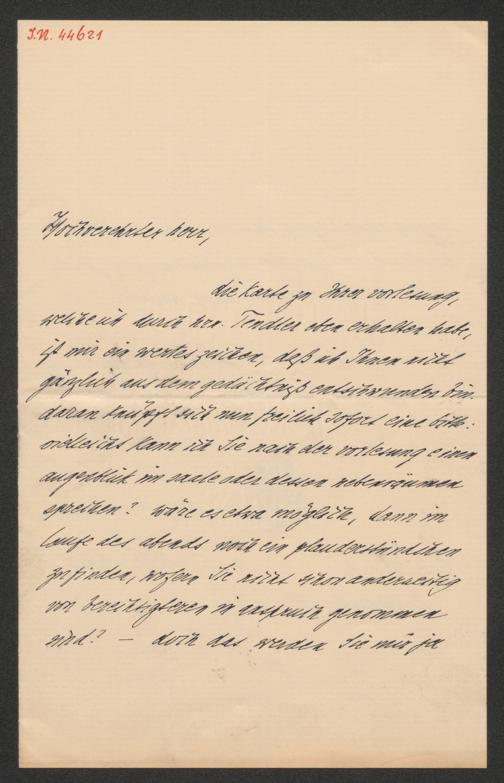 I.N. 44621
Hochverehrter herr,
die karte zu Ihrer vorlesung,
welche ich durch hrn. Tendler eben erhalten habe,
ist mir ein wertes zeichen, daß ich Ihnen nicht
gänzlich aus dem gedächtniß entschwunden bin.
daran knüpft sich nun freilich sofort eine bitte:
vielleicht kann ich Sie nach der vorlesung einen
augenblick im saale oder dessen nebenräumen
sprechen? wäre es etwa möglich, dann im
laufe des abends noch ein plauderstündchen
zu finden, wofern Sie nicht schon anderweitig
von berechtigteren in anspruch genommen
sind? — doch das werden Sie mir ja